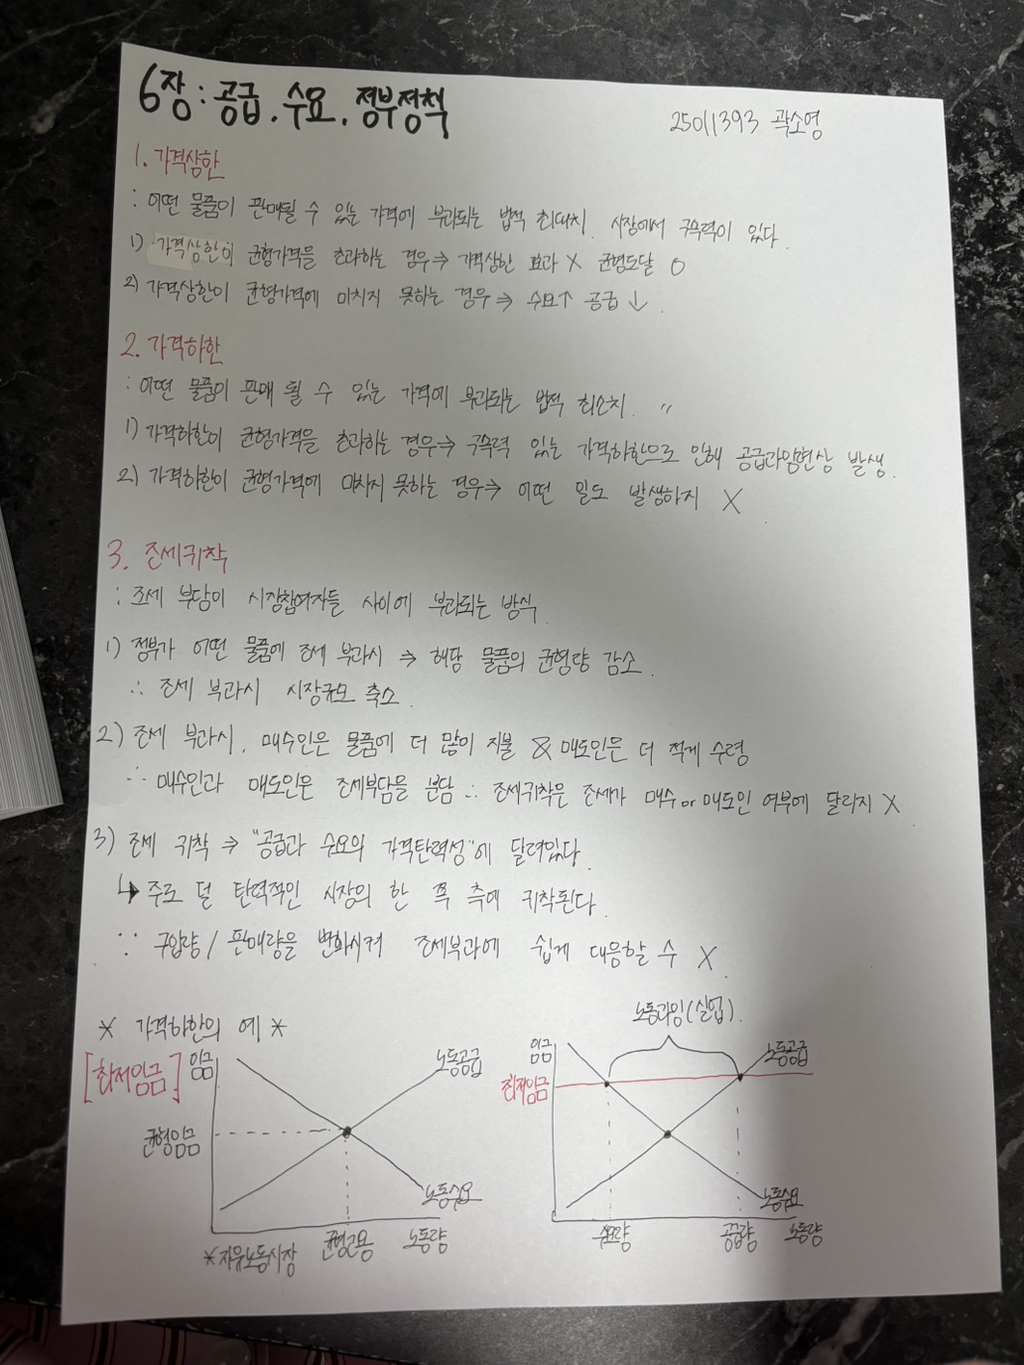 6장 : 공급, 수요, 정부정책
25011393 곽소영
1. 가격상한
: 어떤 물품이 판매될 수 있는 가격에 부과되는 법적 최대치. 시장에서 구속력이 있다.
1) 가격상한이 균형가격을 초과하는 경우 ⇒ 가격상한 효과 X 균형도달 O
2) 가격상한이 균형가격에 미치지 못하는 경우 ⇒ 수요↑ 공급↓.
2. 가격하한
: 어떤 물품이 판매 될 수 있는 가격에 부과되는 법적 최소치. 〃
1) 가격하한이 균형가격을 초과하는 경우 ⇒ 구속력 있는 가격하한으로 인해 공급과잉현상 발생.
2) 가격하한이 균형가격에 미치지 못하는 경우 ⇒ 어떤 일도 발생하지 X
3. 조세귀착
: 조세 부담이 시장참여자들 사이에 부과되는 방식.
1) 정부가 어떤 물품에 조세 부과시 ⇒ 해당 물품의 균형량 감소.
∴ 조세 부과시 시장규모 축소.
2) 조세 부과시, 매수인은 물품에 더 많이 지불 & 매도인은 더 적게 수령
∴ 매수인과 매도인은 조세부담을 분담 ∴ 조세귀착은 조세가 매수 or 매도인 여부에 달리지 X.
3) 조세 귀착 ⇒ "공급과 수요의 가격탄력성"에 달려있다.
↳ 주로 덜 탄력적인 시장의 한 쪽 측에 귀착된다.
∵ 구입량 / 판매량을 변화시켜 조세부과에 쉽게 대응할 수 X.
* 가격하한의 예 *
[최저임금]
임금
노동공급
균형임금
노동수요
균형고용
노동량
* 자유노동시장
노동과잉(실업).
임금
노동공급
최저임금
노동수요
수요량
공급량
노동량